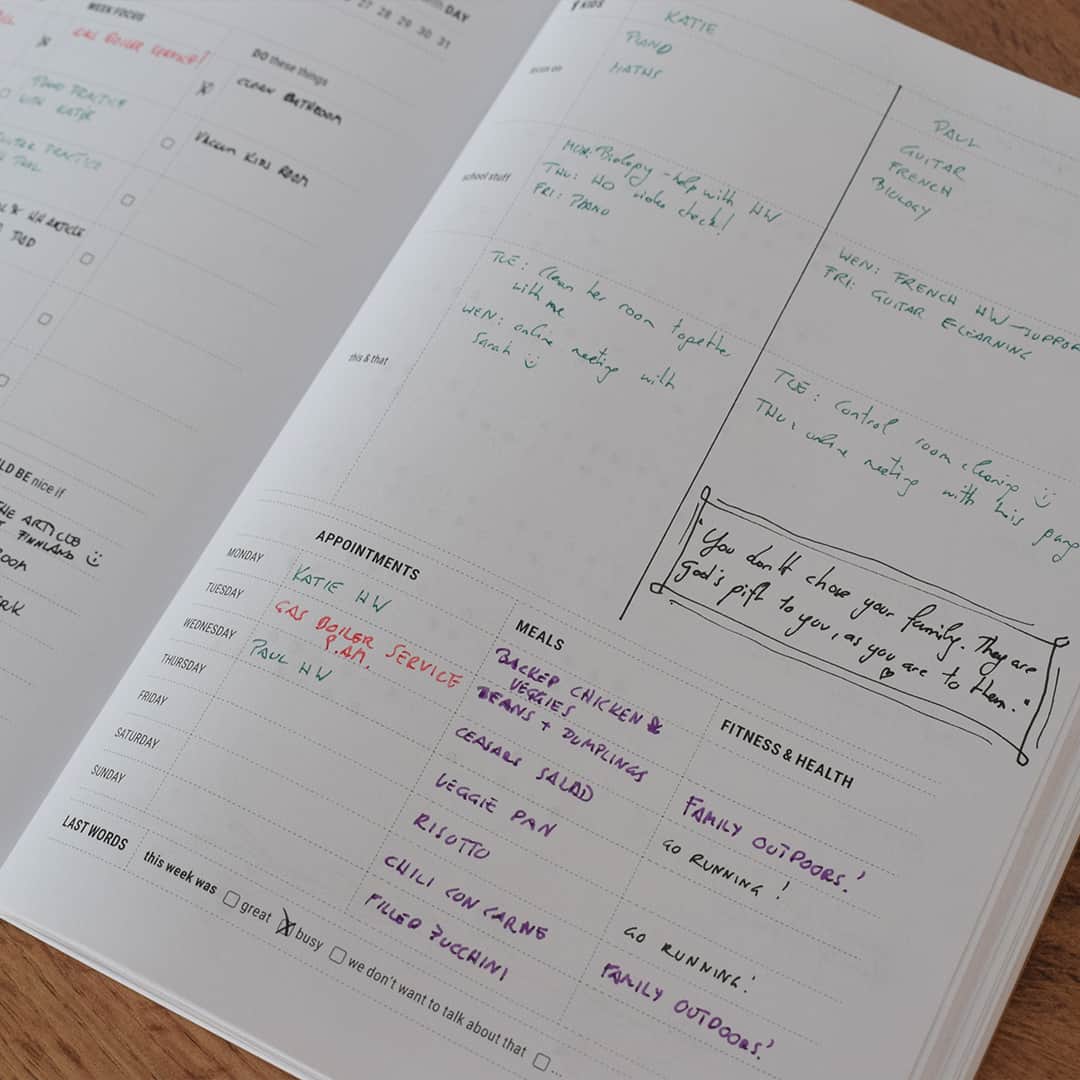 WEEK FOCUS
GAS BOILER SERVICE!
DAY
27 28 29 30 31
DO these things
CLEAN BATHROOM
VACUUM KIDS ROOM
PRACTICE
WITH KATIE
PRACTICE
ARTICLE
nice if
THE ARTICLE
FINNLAND ☺
KIDS
KATIE
focus on
PIANO
MATHS
PAUL
GUITAR
FRENCH
BIOLOGY
school stuff
MON: Biology - help with HW
THU: HO video check!
FRI: PIANO
WEN: FRENCH HW - SUPPOR
FRI: GUITAR ELEARNING
this & that
TUE: Clean her room together
with me
WEN: online meeting with
Sarah ☺
TUE: Control room cleaning ☺
THU: online meeting with his gang
"You don't chose your family. They are
God's gift to you, as you are to them."
♡
APPOINTMENTS
MONDAY
KATIE HW
TUESDAY
GAS BOILER SERVICE
9.AM.
WEDNESDAY
PAUL HW
THURSDAY
FRIDAY
SATURDAY
SUNDAY
MEALS
BACKED CHICKEN &
VEGGIES
BEANS + DUMPLINGS
CEASARS SALAD
VEGGIE PAN
RISOTTO
CHILI CON CARNE
FILLED ZUCCHINI
FITNESS & HEALTH
FAMILY OUTDOORS!
GO RUNNING!
GO RUNNING!
FAMILY OUTDOORS!
LAST WORDS
this week was great busy we don't want to talk about that ...